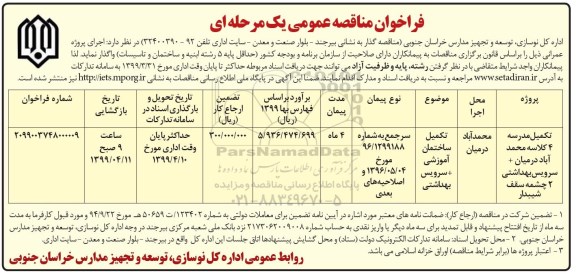 فراخوان مناقصه عمومی یک مرحله ای
اداره کل نوسازی، توسعه و تجهیز مدارس خراسان جنوبی (مناقصه گذار به نشانی بیرجند - بلوار صنعت و معدن - سایت اداری تلفن ۹۲ - ۳۲۴۰۰۳۹۰) در نظر دارد: اجرای پروژه
عمرانی ذیل را براساس قانون برگزاری مناقصات به پیمانکاران دارای صلاحیت از سازمان برنامه و بودجه کشور (حداقل پایه ۵ رشته ابنیه و ساختمان و تاسیسات) واگذار نماید. لذا
پیمانکاران واجد شرایط متقاضی با در نظر گرفتن رشته، پایه و ظرفیت آزاد می توانند جهت دریافت اسناد مربوطه حداکثر تا پایان وقت اداری مورخ ۱۳۹۹/۳/۳۱ به سامانه تدارکات
به آدرس www.setadiran.ir مراجعه و نسبت به دریافت اسناد و مدارک اقدام نمایند. ضمنا این آگهی در پایگاه ملی اطلاع رسانی مناقصات به نشانی http://iets.mporg.ir نیز منتشر شده است.
پروژه
محل اجرا
موضوع
نوع پیمان
مدت پیمان
برآورد براساس فهارس بها ۱۳۹۹ (ریال)
تضمین ارجاع کار (ریال)
تاریخ تحویل و بارگذاری اسناد در سامانه تدارکات
تاریخ بازگشایی
شماره فراخوان
تکمیل مدرسه ۴ کلاسه محمد آباد درمیان + سرویس بهداشتی ۲ چشمه سقف شیبدار
محمدآباد درمیان
تکمیل ساختمان آموزشی + سرویس بهداشتی
سرجمع به شماره ۹۶/۱۲۹۹۱۸۸ مورخ ۱۳۹۶/۰۵/۰۴ و اصلاحیه های بعدی
۴ ماه
۵/۹۳۶/۴۷۴/۶۹۹
۳۰۰/۰۰۰/۰۰۰
حداکثر پایان وقت اداری مورخ ۱۳۹۹/۴/۱۰
ساعت ۹ صبح ۱۳۹۹/۰۴/۱۱
۲۰۹۹۰۰۳۷۴۸۰۰۰۰۰۹
ParsNamadData
۰۲۱-۸۸۳۴۹۶۷۰-۵
۱ - تضمین شرکت در مناقصه (ارجاع کار): ضمانت نامه های معتبر مورد اشاره در آیین نامه تضمین برای معاملات دولتی به شماره ۱۲۳۴۰۲/ت ۵۰۶۵۹ هـ مورخ ۹۴/۹/۲۲ و مورد قبول کارفرما به مدت
سه ماه از تاریخ افتتاح پیشنهاد و قابل تمدید برای سه ماه دیگر یا واریز نقدی به حساب شماره ۲۱۷۳۰۶۲۰۰۹۰۰۸ نزد بانک ملی شعبه مرکزی بیرجند در وجه اداره کل نوسازی، توسعه و تجهیز مدارس
خراسان جنوبی. ۲ - محل تحویل اسناد: سامانه تدارکات الکترونیک دولت (ستاد) و محل گشایش پیشنهادها اتاق جلسات این اداره کل واقع در بیرجند - بلوار صنعت و معدن - سایت اداری.
۳ - اعتبار پروژه ها (برابر شرایط مناقصه) اوراق خزانه اسلامی می باشد.
روابط عمومی اداره کل نوسازی، توسعه و تجهیز مدارس خراسان جنوبی